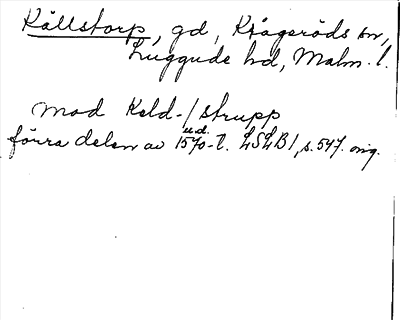 Källstorp, gd, Kågeröds sn,
Luggude hd, Malm. l.
mad Keld-/strupp
u.d.
förra delen av 1570-t. LSLB1, s. 547. orig.